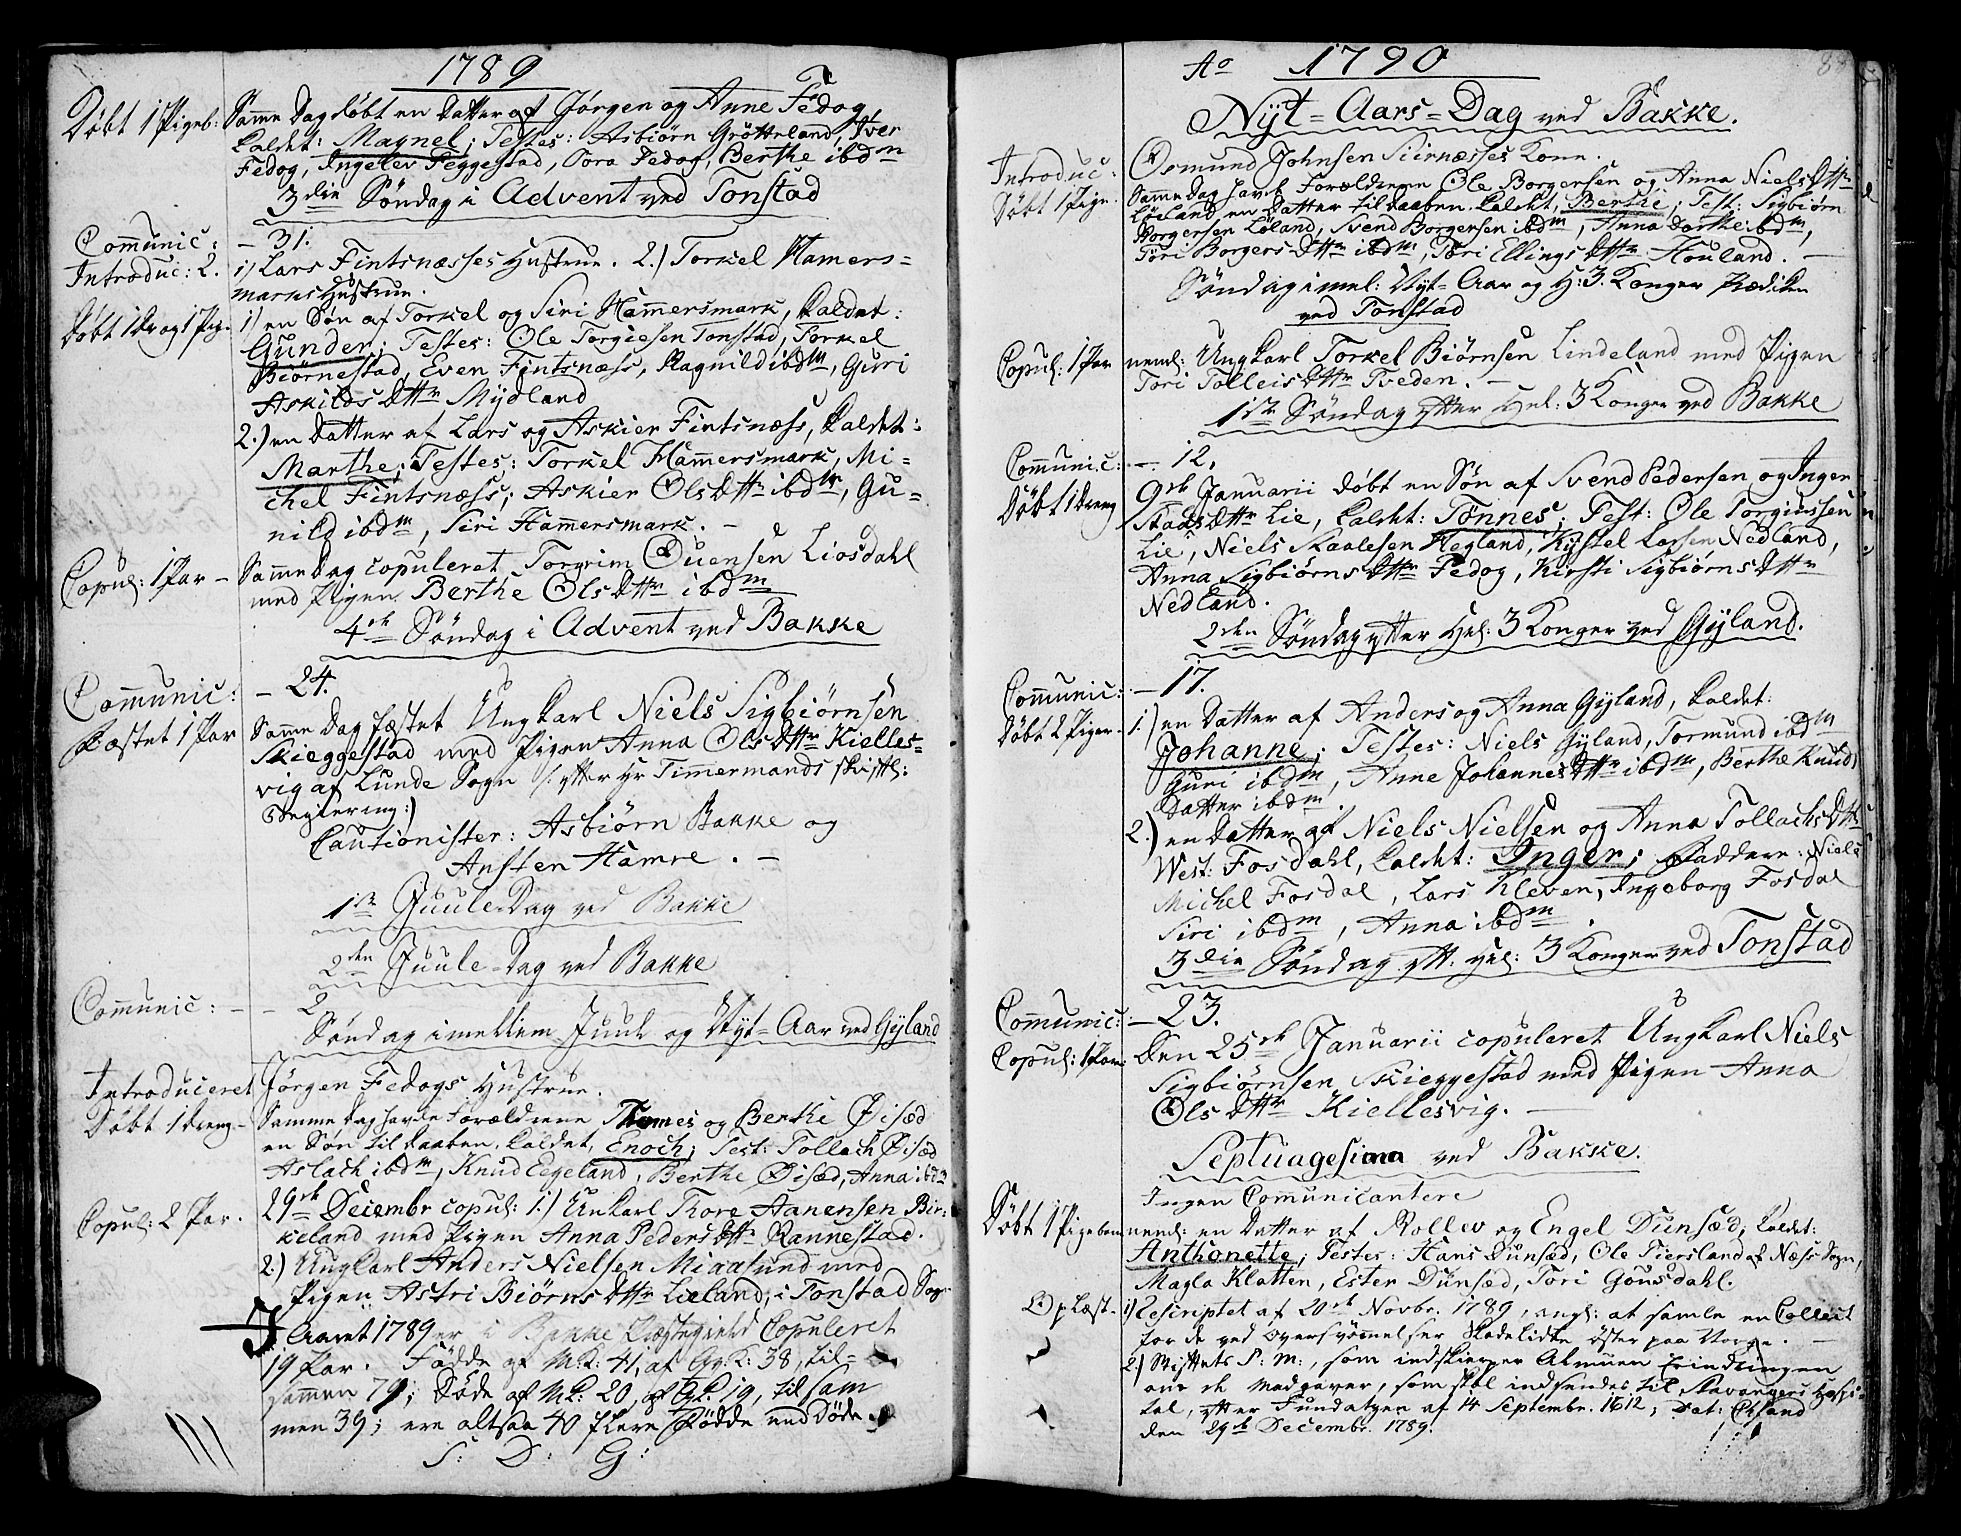 1789
Døbt 1 Pigeb: Samme Dag døbt en Datter af Jørgen og Anne Fedog,
kaldet: Magnel; Testes: Asbiørn Grøtteland, Iver
Fedog, Ingelev Feggestad, Tora Fedog, Berthe ibdm
3die Søndag i Advent ved Tonstad
Com̄unic: – 31.
Introduc: 2. 1) Lars Fintsnæsses Hustrue. 2.) Torkel Ham̄ers=
marks Hustrue.
Døbt 1 Dr og 1 Pig. 1) en Søn af Torkel og Siri Ham̄ersmark, kaldet:
Gunder; Testes: Ole Torgiesen Tonstad, Torkel
Biørnestad, Even Fintsnæss, Ragnild ibdm, Guri
Askilds Dttr Mydland
2.) en Datter af Lars og Askier Fintsnæss, kaldet:
Marthe; Testes: Torkel Ham̄ersmark, Mi=
chel Fintsnæss; Askier Ols Dttr ibdm, Gu=
nild ibdm, Siri Ham̄ersmark. –
Copul: 1 Par – Samme Dag copuleret Torgrim Ouensen Liosdahl
med Pigen Berthe Ols Dttr ibdm
4de Søndag i Advent ved Bakke
Com̄unic: – 24.
Fæstet 1 Par Samme Dag fæstet Ungkarl Niels Sigbiørnsen
Skieggestad med Pigen Anna Ols Dttr Kielles=
vig af Lunde Sogn /: efter Hr Tim̄ermands skriftl:
Begiering :/
Cautionister: Asbiørn Bakke og
Ansten Hamre. –
1ste Juule-Dag ved Bakke
2den Juule-Dag ved Bakke
Com̄unic: – – 2
Søndag imellem Juul og Nyt=Aar ved Gyland
Introduceret Jørgen Fedogs Hustrue.
Døbt 1 Dreng – Samme Dag havde Forældrene Tomes og Berthe Øisæd
en Søn til Daaben, kaldet, Enoch; Test: Tollach Øisæd
Aslach ibdm, Knud Eegeland, Berthe Øisæd, Anna ibdm
Copul: 2 Par. 29de Decembr copul: 1.) Unkarl Thore Aanensen Bir=
keland med Pigen Anna Peders Dttr Rannestad.
2.) Ungkarl Anders Nielsen Miaasund med
Pigen Astri Biørns Dttr Lieland, i Tonstad Sogn
I Aaret 1789 er i Bakke Præstegield Copuleret
19 Par. Fødde af M.K: 41, af Qv.K: 38, til=
sammen 79; Døde af M.K: 20, af Qv.K: 19, til sam
men 39; ere altsaa 40 flere Fødde end Døde.
S: D: G:
Ao 1790
Nyt=Aars=Dag ved Bakke.
Introduc: Osmund Johnsen Siirnæsses Kone.
Døbt 1 Pige. Samme Dag havde Forældrene Ole Borgersen og Anna Niels Dttr
Løeland, en Datter til Daaben, kaldet, Berthe; Test: Sigbiørn
Borgersen Løland, Svend Borgersen ibdm, Anna Dorthe ibdm,
Tori Borgers Dttr ibdm, Tori Ellings Dttr Houland. –
Søndag imel: Nyt=Aar og H: 3. Konger Prædiken
ved Tonstad
Copul: 1 Par neml: Ungkarl Torkel Biørnsen Lindeland med Pigen
Tori Tolleis Dttr Tveden. –
1ste Søndag efter Hel: 3 Konger ved Bakke
Com̄unic: – 12.
Døbt 1 Dreng 9de Januarii døbt en Søn af Svend Pedersen og Inger
Stads Dttr Lie, kaldet: Tønnes; Test: Ole Torgiussen
Lie, Niels Skaalesen Hegland, Kystel Larsen Nedland,
Anna Sigbiørns Dttr Fedog, Kirsti Sigbiørns Dttr
Nedland.
2den Søndag efter Hel: 3 Konger ved Gyland.
Com̄unic: – 17.
Døbt 2 Piger. 1.) en Datter af Anders og Anna Gyland, kaldet:
Johanne; Testes: Niels Gyland, Tormund ibdm
Guri ibdm, Anne Johannes Dttr ibdm, Berthe Knuds
Datter ibdm.
2.) en Datter af Niels Nielsen og Anna Tollachs Dttr
West: Fosdahl, kaldet: Inger; Faddere: Niels
Michel Fosdal, Lars Kleven, Ingeborg Fosdal
Siri ibdm, Anna ibdm.
3die Søndag eft: Hel: 3 Konger ved Tonstad
Com̄unic: – 23.
Copul: 1 Par. Den 25de Januarii copuleret Ungkarl Niels
Sigbiørnsen Skieggestad med Pigen Anna
Ols Dttr Kiellesvig. –
Septuagesima ved Bakke.
Ingen Com̄unicantere
Døbt 1 Pigebarn neml: en Datter af Rollev og Engel Dunsæd; kaldet:
Anthonette; Testes: Hans Dunsæd, Ole Tiersland af Næss Sogn,
Magla Klatten, Ester Dunsæd, Tori Gousdahl.
Oplæst. 1) Rescriptet af 20de Novbr. 1789, angl: at samle en Collect
for de ved Oversvøm̄elser Skadelidte øster paa Norge. –
2) Stiftets P: M:, som indskierper Almuen Erindringen
om de Madgaver, som skal indsendes til Stavangers Hospi=
tal, efter Fundatzen af 14 Septembr. 1612; Dat:
den 29de Decembr. 1789.